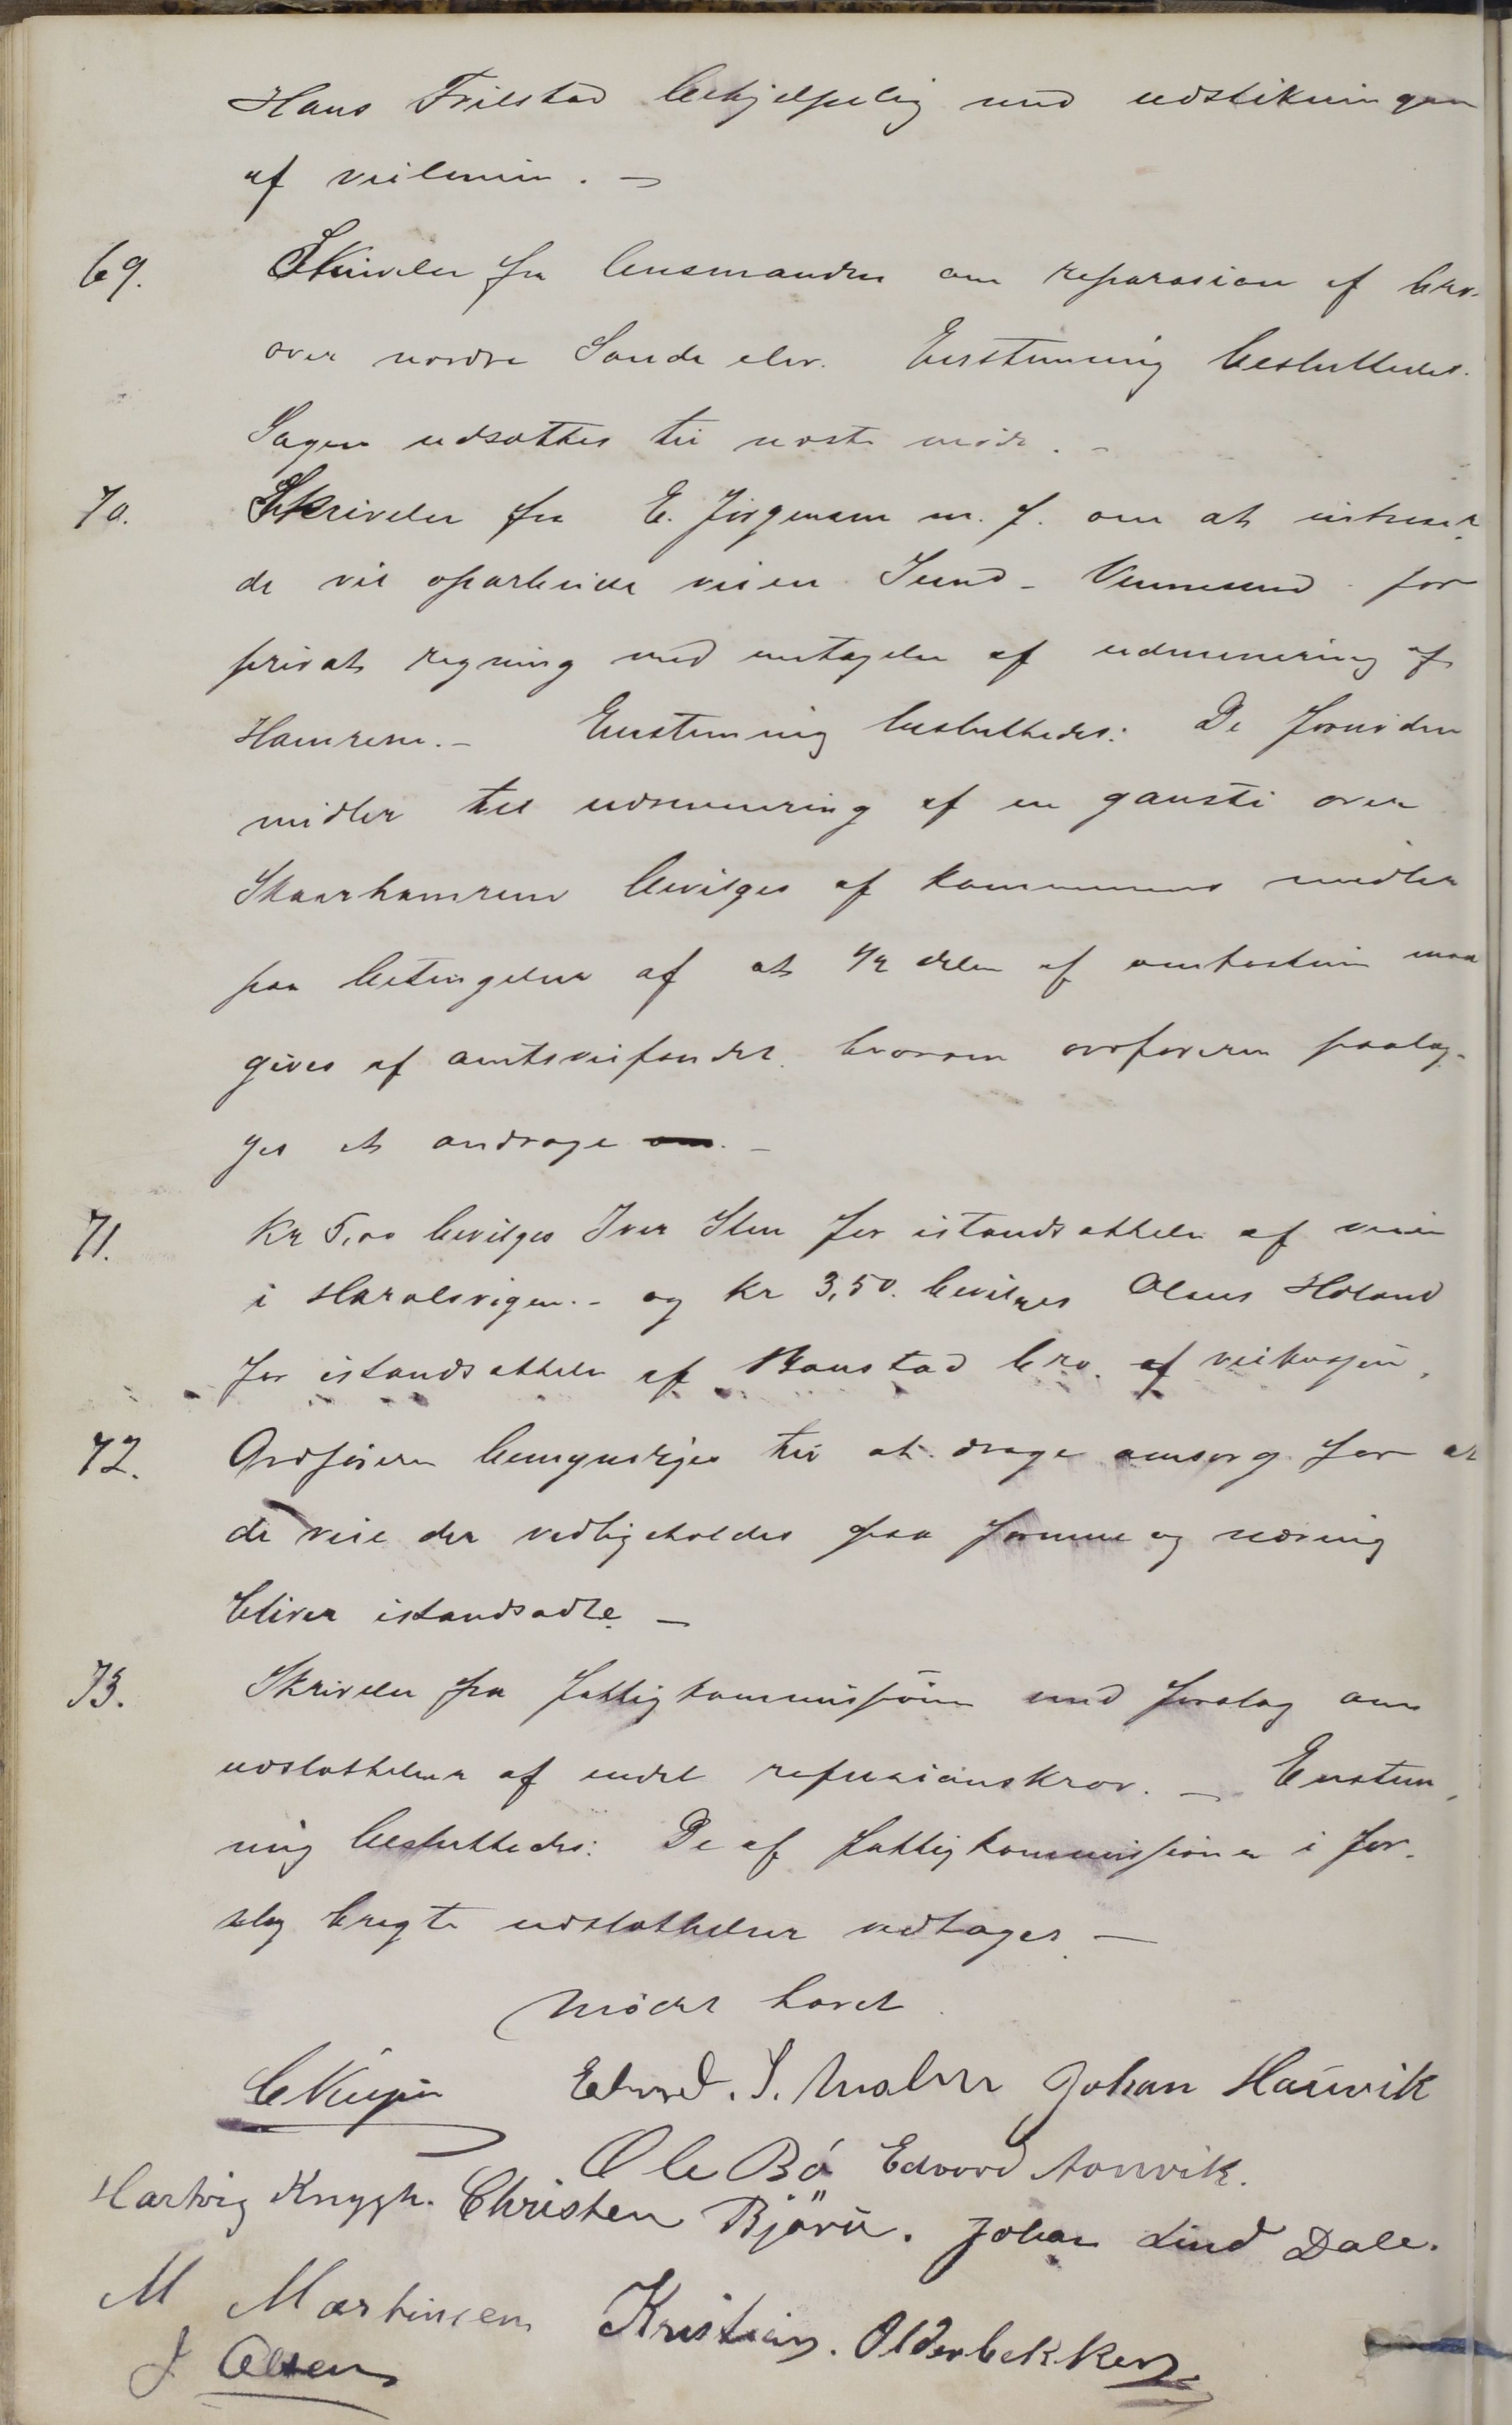 Hans Trilstad behjelpelig med udstikningen
af veilinin. -
69. Skrivelse fra lensmanden om reparasion af bro
over nordre Sande elv. Enstemmig besluttedes.
Sagen udsættes til næste møde. -
70. Skrivelse fra E. Jørgensen m. fl. om at
de vil oparbeide veien Sund - Vennesund for
privat regning med untagelse af udminering af
Hamrene. - Enstemmig besluttedes: De fornødne
midler til udminering af en gangsti over
Skaarhamrene bevilges af kommunens midler
paa betingelse af at 1/2 delen af omkostnin maa
gives af amtsveifondet hvorom ordføreren paalæg-
ges at andrage om. -
71. Kr 5,00 bevilges Iver Sten for istandsættelse af veien
i Haralsvigen. - og Kr 3,50. bevilges Olaus Høland
for istandsættelse af Baustad bro. af veikassen.
72. Ordføreren bemyndiges til at drage omsorg for at
de veie der vedligeholdes paa fomme og næring
bliver istandsadte -
73. Skrivelse fra fattigkommissionen med forslag om
udslættelser af endel refusionskrav. - Enstem-
mig besluttedes: De af fattigkommissionen i for-
slag bragte udslættelser vedtages -
Mødet hævet.
Edvard. S. Malm Johan Haüvik
Ole Bö Edvard Aanvik.
Hartvig Krygh. Christen Björü. Johan Lind Dale.
M Martinsen Kristian. Olderbekken
J Olsen